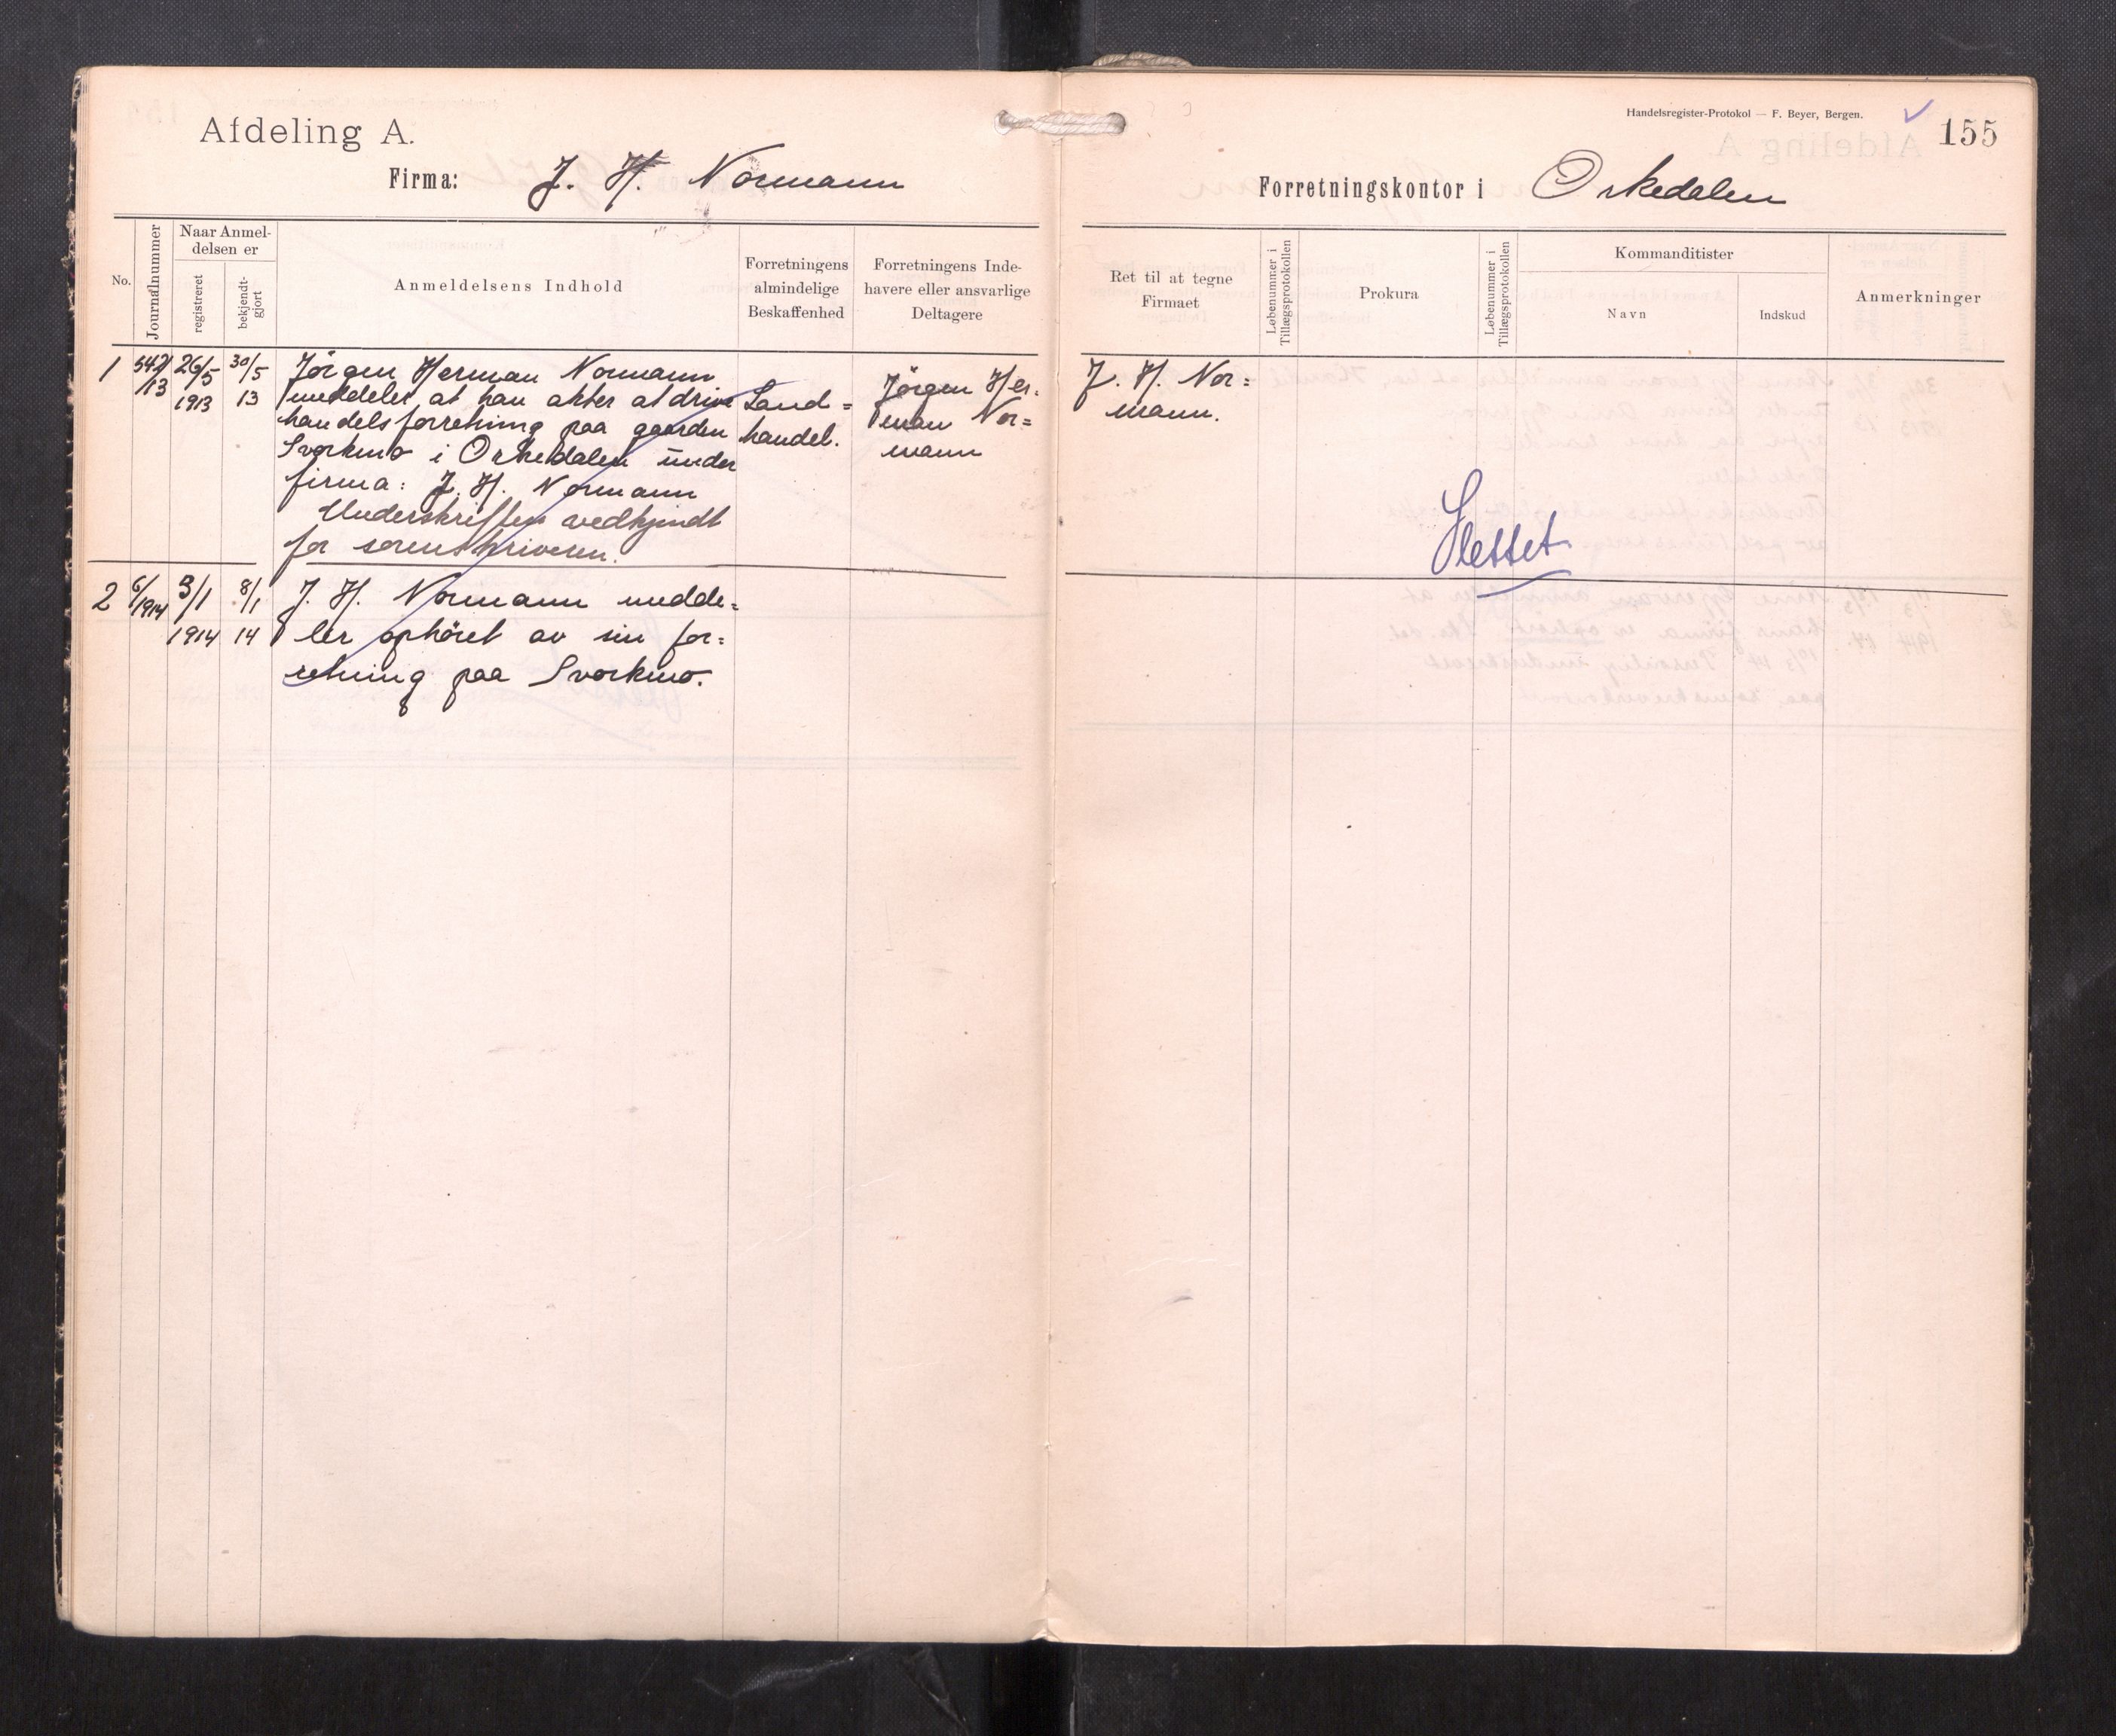 Afdeling A.
Firma: J. H. Normann
No.
Journalnummer
Naar Anmel-
delsen er
registreret
bekjendt-
gjort
Anmeldelsens Indhold
Forretningens
almindelige
Beskaffenhed
Forretningens Inde-
havere eller ansvarlige
Deltagere
1
542/13
26/5
1913
30/5
13
Jörgen Herman Normann
meddeler, at han akter at drive
handelsforretning paa gaarden
Svorkmo i Orkedalen under
firma: J. H. Normann
Underskriften vedkjendt
for sorenskriveren.
Land=
handel.
Jörgen Her=
man Nor=
mann
2
6/1914
3/1
1914
8/1
14
J. H. Normann medde=
ler ophöret av sin for=
retning paa Svorkmo.
Handelsregister-Protokol — F. Beyer, Bergen.
155
Forretningskontor i Orkedalen
Ret til at tegne
Firmaet
Løbenummer i
Tillægsprotokollen
Prokura
Løbenummer i
Tillægsprotokollen
Kommanditister
Navn
Indskud
Anmerkninger
J. H. Nor=
mann.
Slettet